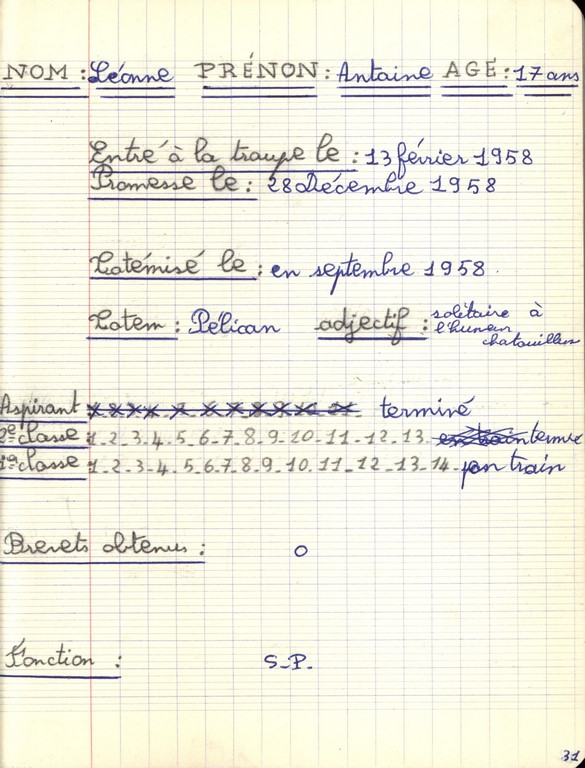 NOM : Léonne PRÉNON : Antoine AGE : 17 ans
Entré à la troupe le : 13 février 1958
Promesse le : 28 Décembre 1958
Totémisé le : en septembre 1958.
Totem : Pélican adjectif : solitaire à
l'humeur
chatouilleuse
Aspirant terminé
2e classe 1-2-3-4-5-6-7-8-9-10-11-12-13. terminé
1e classe 1-2-3-4-5-6-7-8-9-10-11-12-13-14- en train
Brevets obtenus : 0
Fonction : S-P-
31